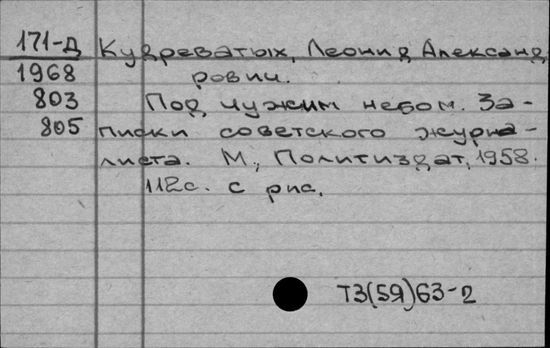 171-Д Кудреватых, Леонид Александ
1968 рович.
803 Под чужим небом. За-
805 писки советского журна-
листа. М., Политиздат, 1958.
112с. с рис.
Т3(5Я)63-2